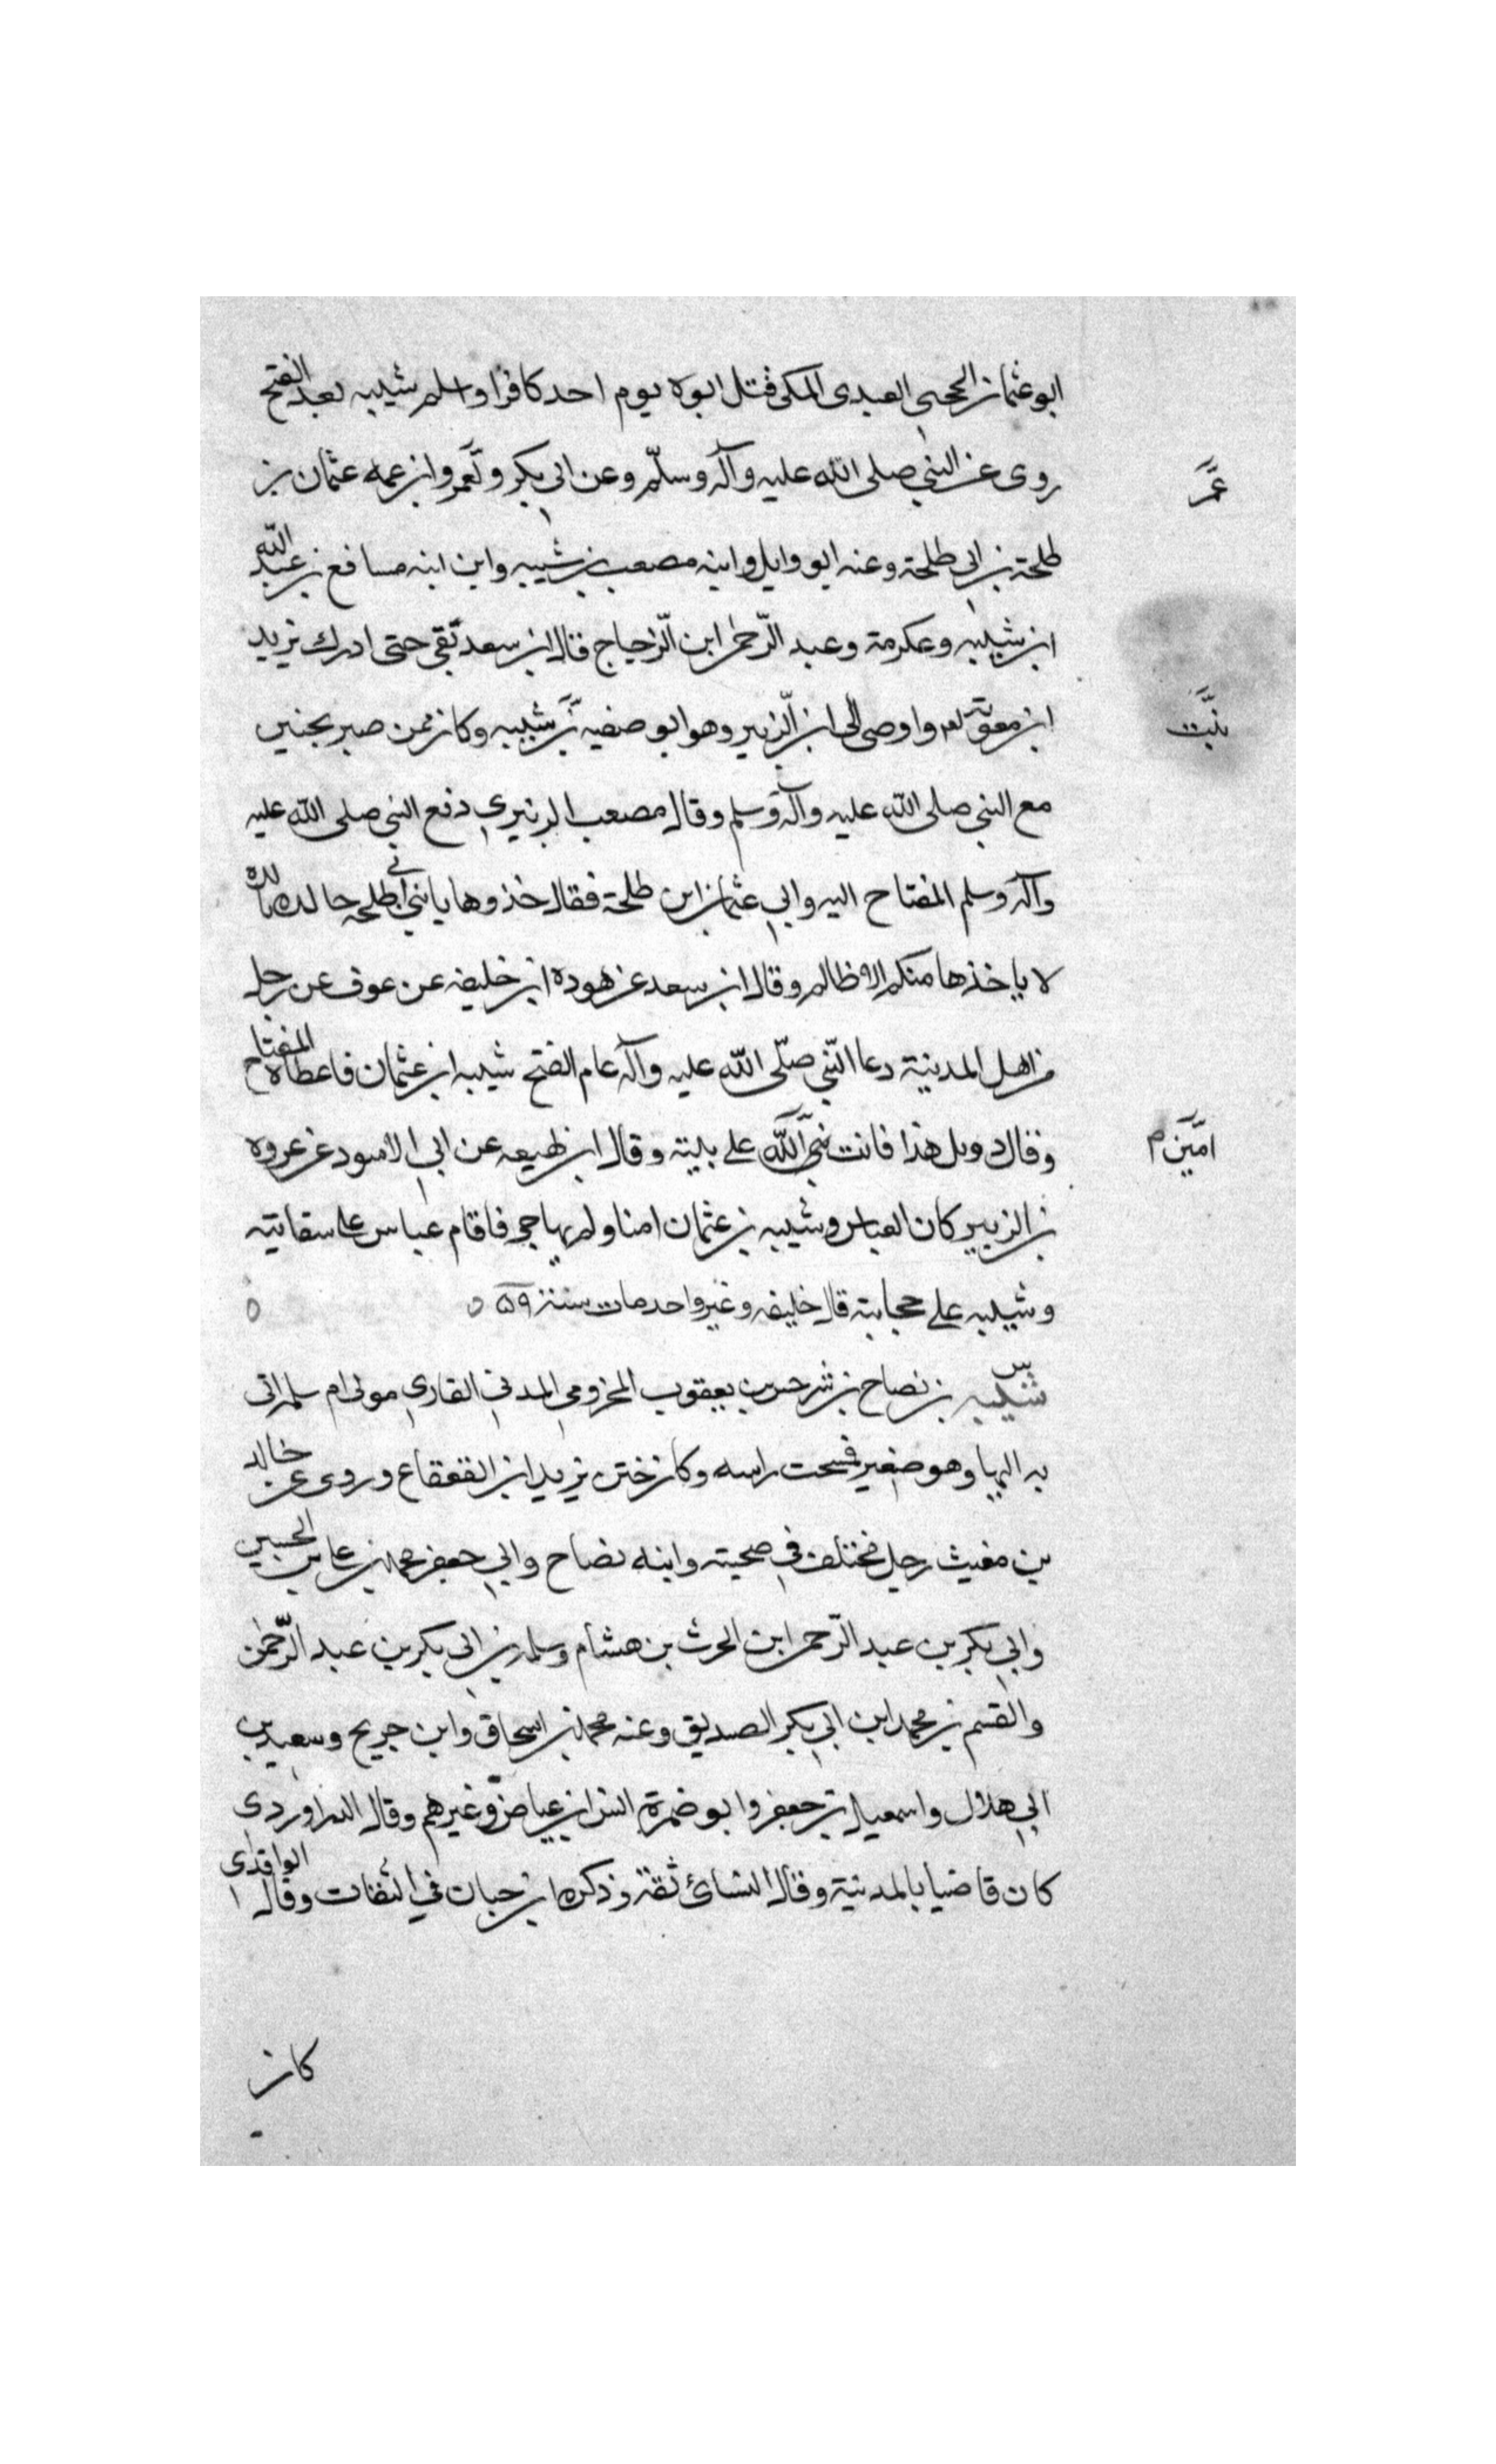 ابو عثمان الحجبي العبدى المكى قتل ابوه يوم احد كافرا واسلم شيبه بعد الفتح
روى عن النبي صلى الله عليه وآله وسلّم وعن ابي بكر وعمر وابن عمه عثمان بن
عمر
طلحة بن ابي طلحة وعنه ابو وايل وابنه مصعب بن شيبه وابن ابنه مسافع بن عبد الله
ابن شيبه وعكرمة وعبد الرّحمن ابن الزّجاج قال ابن سعد بقي حتى ادرك يزيد
ابن معوية واوصى الى ابن الزّبير وهو ابو صفيه شيبه وكان ممن صبر بحنين
بنت
مع النبي صلى الله عليه وآله وسلم وقال مصعب الزبيري دفع النبي صلى الله عليه
وآله وسلم المفتاح اليه والي عثمان ابن طلحة فقال خذوها يا بني ابي طلحه خالده تالده
لا ياخذها منكم الا ظالم وقال ابن سعد عن هوده ابن خليفه عن عوف عن رجل
من اهل المدينة دعا النّبي صلّى الله عليه وآله عام الفتح شيبه ابن عثمان فاعطاه المفتاح
وقال دونك هذا فانت الله على بيته وقال ابن لهيعه عن ابي الاسود عن عروه
امين
بن الزبير كان العباس وشيبه بن عثمان امنا ولم يهاجر فاقام عباس على سقايته
وشيبه على حجابته قال خليفه وغير واحد مات سنة ٥٩
س
شيبه بن نصاح بن سرجس بن يعقوب المخزومي المدني القاري مولى ام سلمه اتى
به اليها وهو صغير فمسحت راسه وكان ختن يزيد ابن القعقاع وروى عن خالد
بن مغيث رجل مختلف في صحبته وابنه نصاح وابي جعفر محمد بن على بن الحسين
وابي بكر بن عبد الرّحمن ابن الحرث بن هشام وسلمه بن ابي بكر بن عبد الرّحمن
والقسم بن محمد ابن ابي بكر الصديق وعنه محمد بن اسحاق وابن جريج وسعيد بن
ابي هلال واسمعيل بن جعفر وابو ضمرة انس ابن عياض وغيرهم وقال الدراوردى
كان قاضيا بالمدينة وقال النسائ ثقة وذكره ابن حبان في الثقات وقال الواقدى
كان